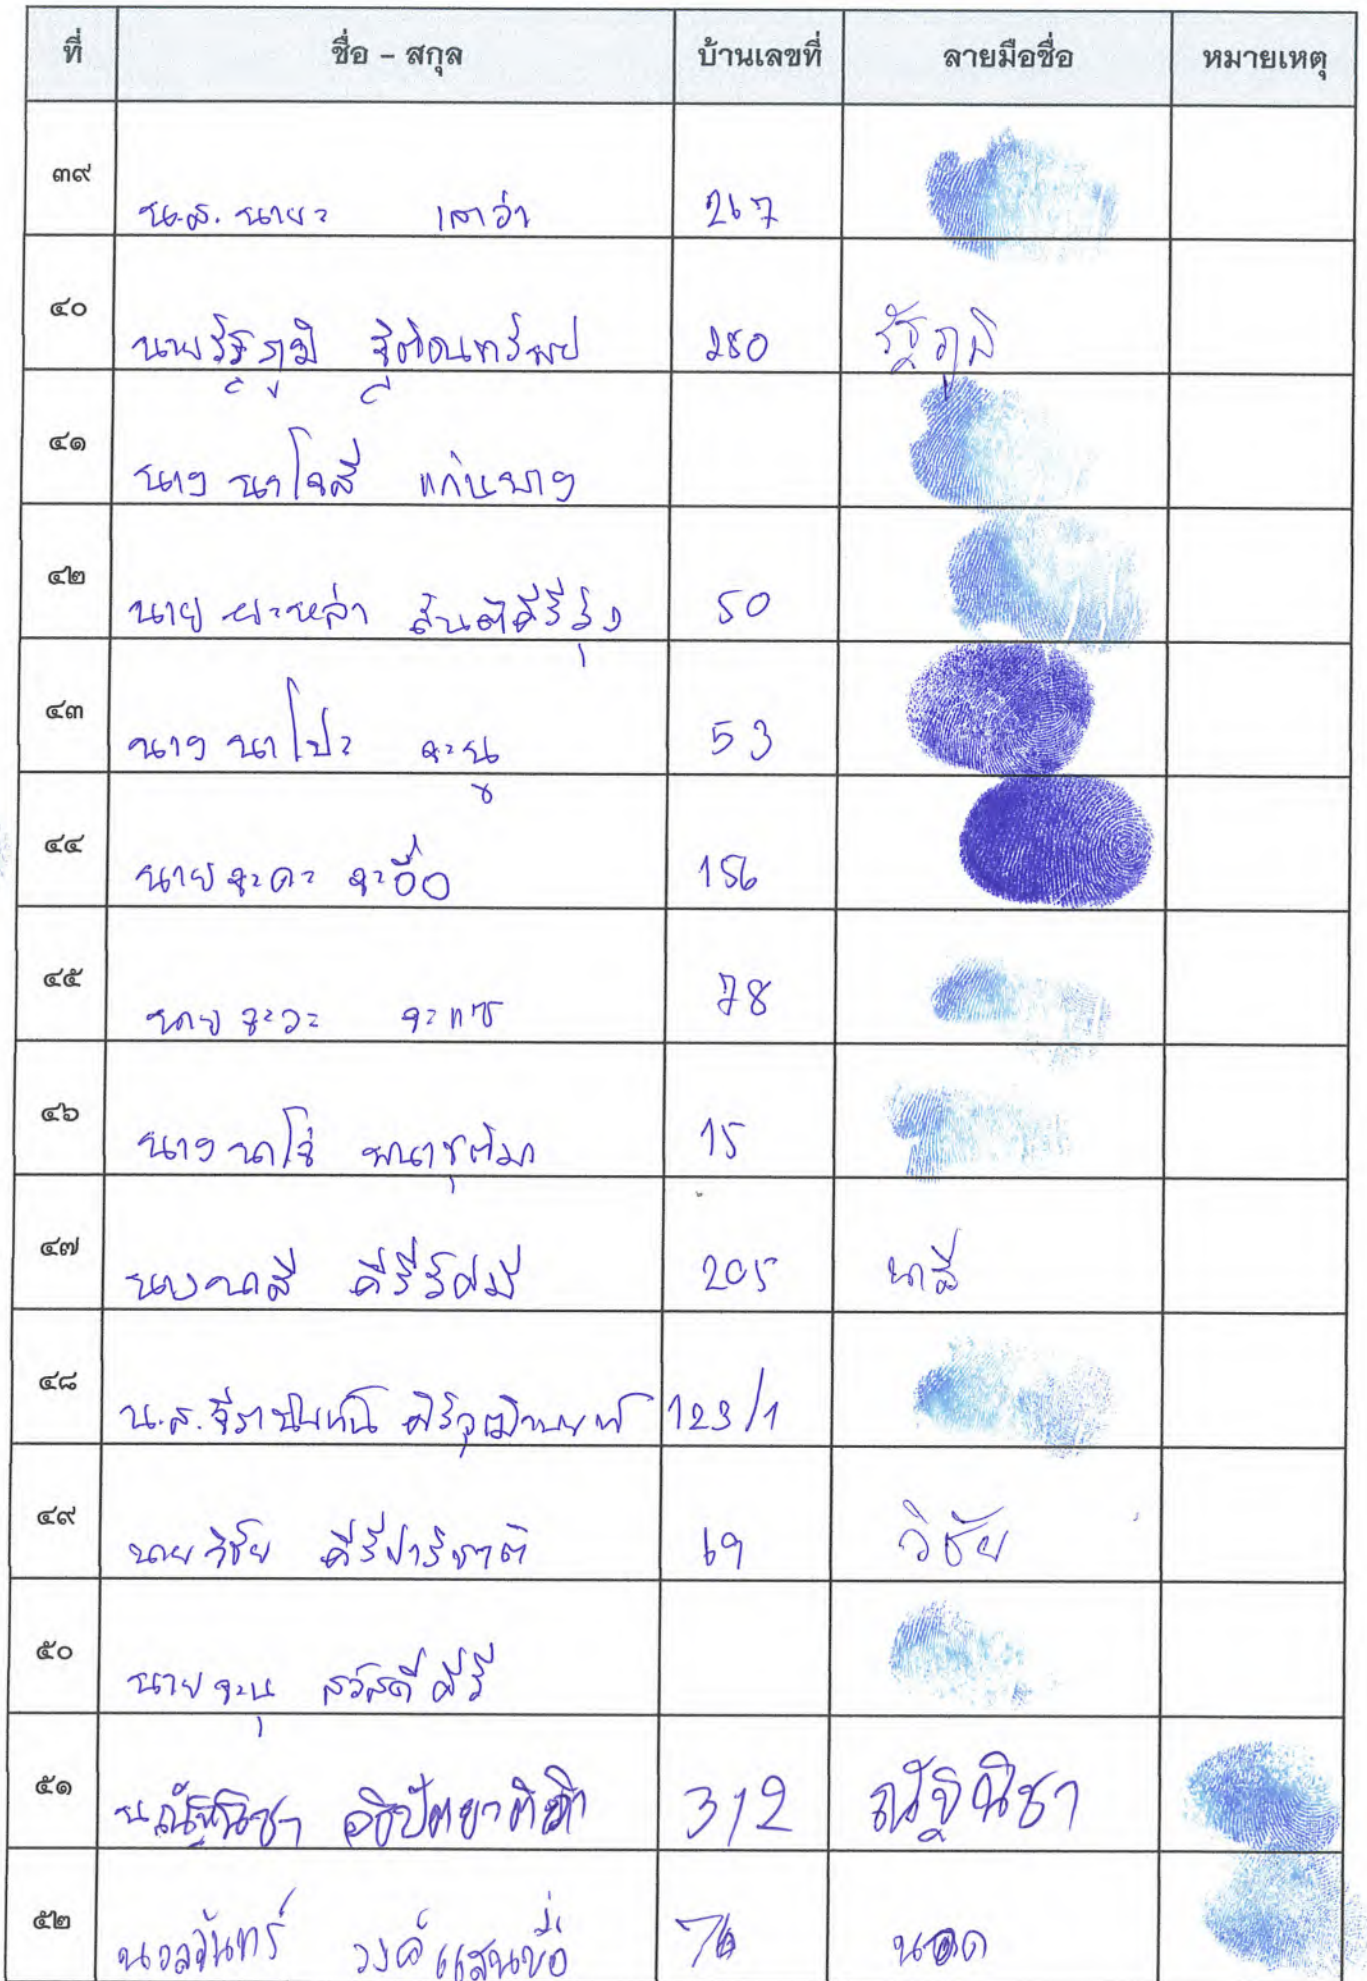 ที่ ชื่อ - สกุล บ้านเลขที่ ลายมือชื่อ หมายเหตุ
๓๙ น.ส. นายะ เลาว่า 267
๔๐ นายรัฐภูมิ ฐิติอนทรัพย์ 280 รัฐภูมิ
๔๑ นาง นาโจสี แก่นบาง
๔๒ นาย ยะหล่า สันติคีรีรุ่ง 50
๔๓ นาง นาโปะ จะนู 53
๔๔ นาย จะคะ จะอื่อ 156
๔๕ นาย จะวะ จะแซ 78
๔๖ นาง นาโจ่ พนาชุติมา 15
๔๗ นาง นาสี คีรีรัศมี 205 นาสี
๔๘ น.ส. จีรานันท์ 123/1
๔๙ นาย วิชัย คีรีปาริชาติ 69 วิชัย
๕๐ นาย จะนุ สวัสดิ์คีรี
๕๑ ณัฐนิชา 312 ณัฐนิชา
๕๒ นวลจันทร์ วงค์แสนข่อ 76